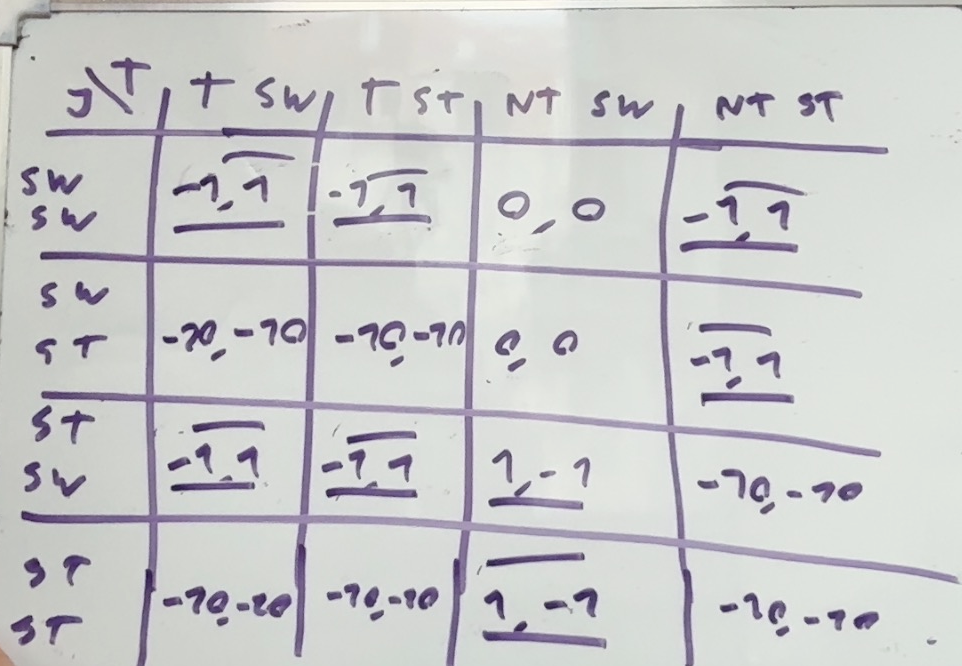 J\T T SW T ST NT SW NT ST
SW
SW -1,1 -1,1 0,0 -1,1
SW
ST -10,-10 -10,-10 0,0 -1,1
ST
SW -1,1 -1,1 1,-1 -10,-10
ST
ST -10,-10 -10,-10 1,-1 -10,-10